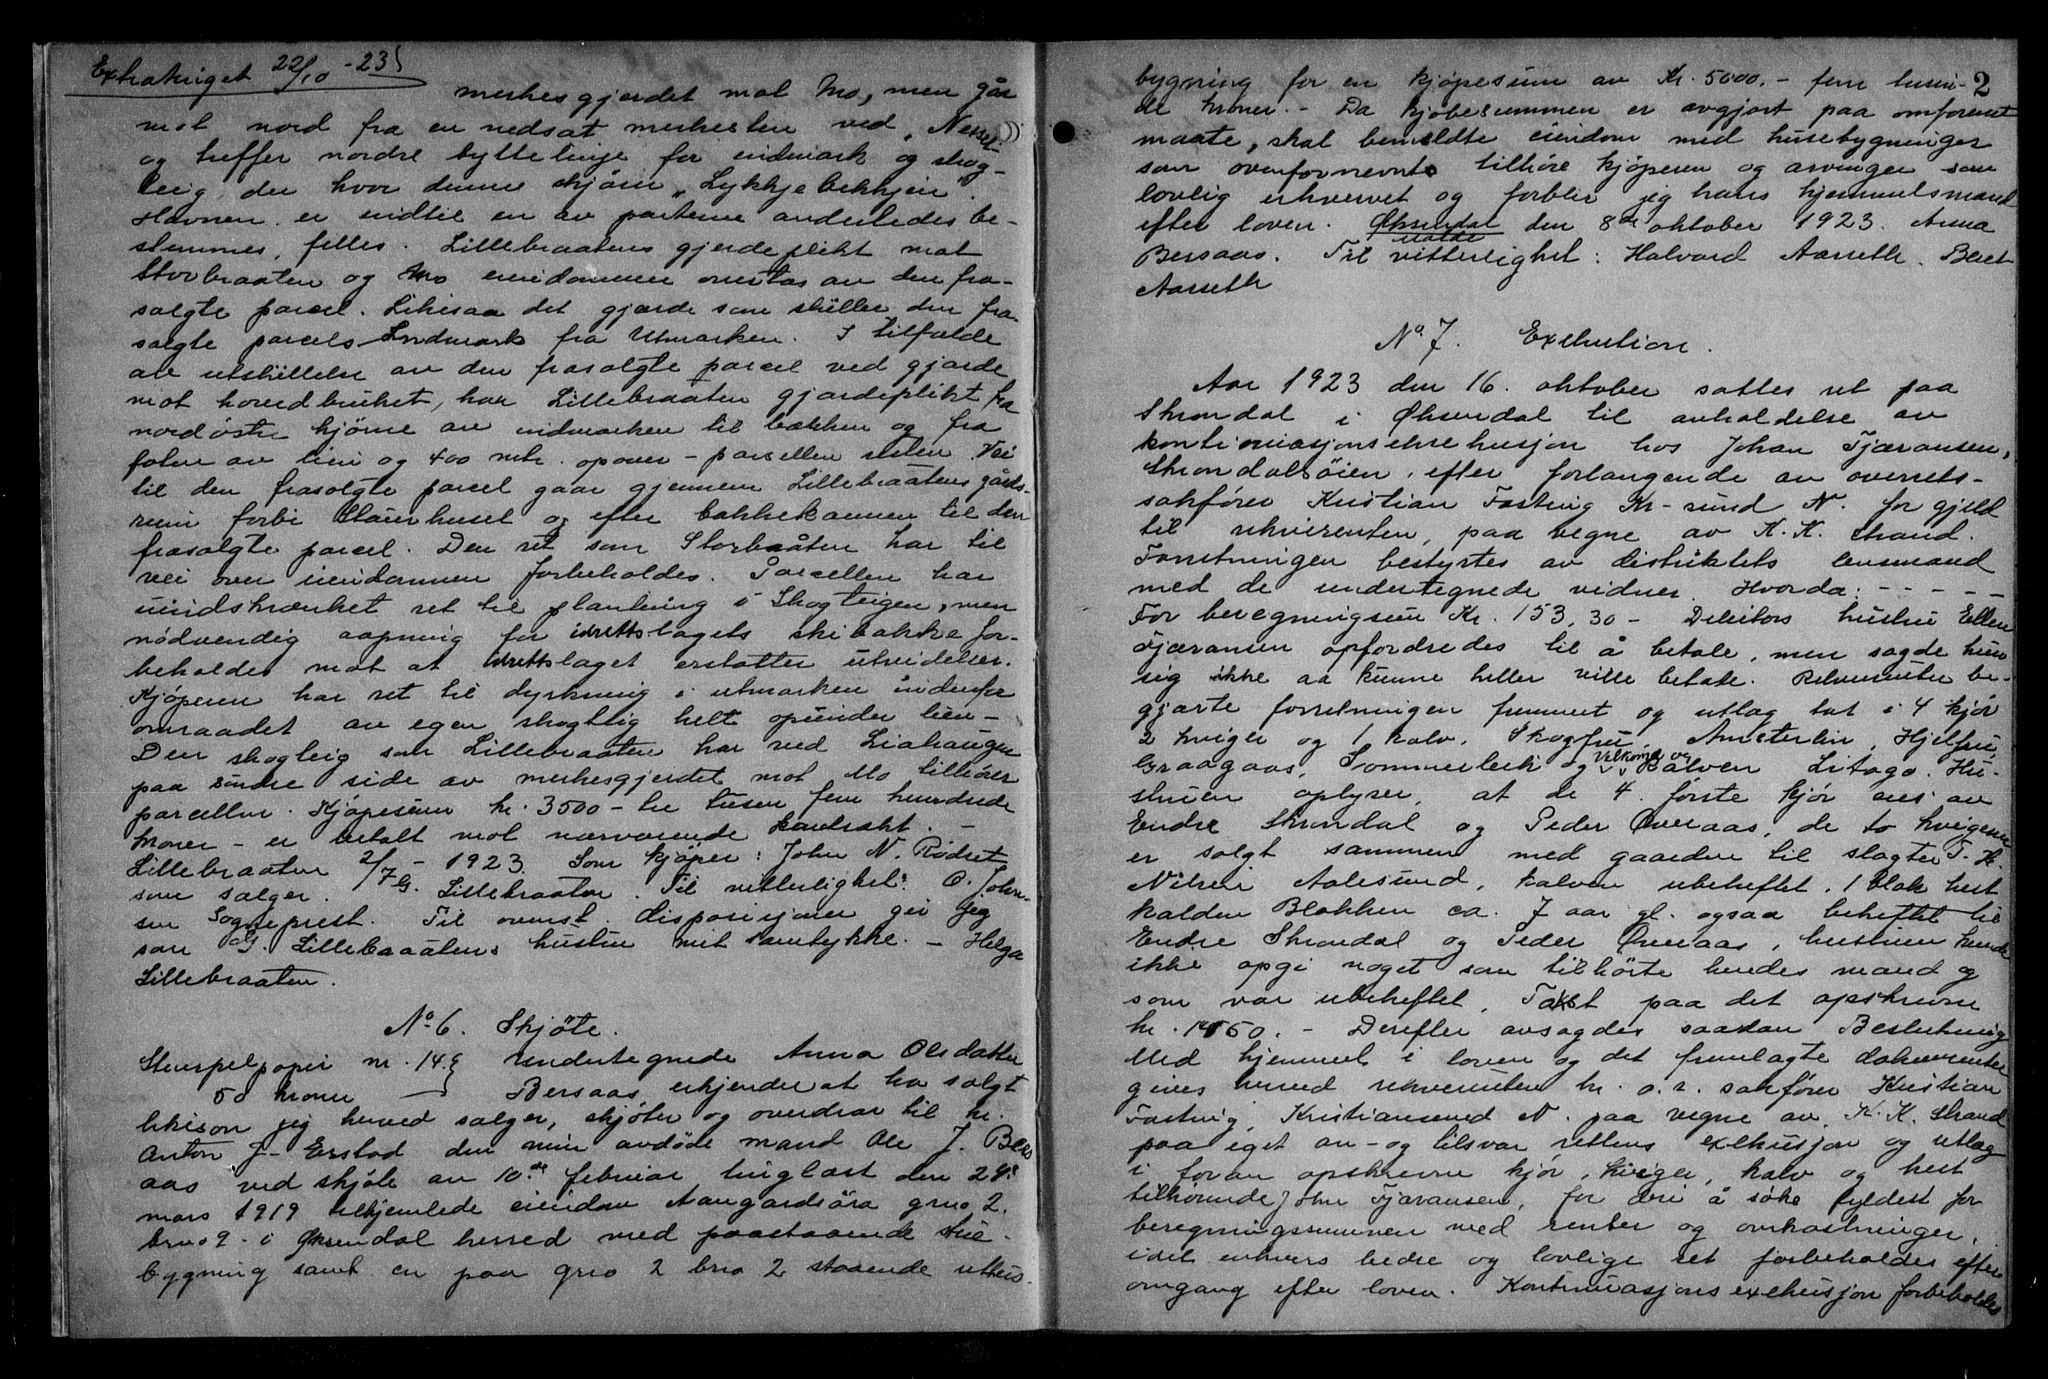 Extratinget 22/10 - 23
merkesgjerdet mot Mo, men går
mot nord fra en nedsat merkesten ved
og treffer nordre byttelinje for indmark og skog-
teig, der hvor denne skjærer "Lykkjebekkjen".
Havnen er indtil en av parterne anderledes be-
stemmes, felles. Lillebraatens gjerdeplikt mot
Storbraaten og Mo eiendommer overtas av den fra-
solgte parcel. Likesaa det gjærde som skiller den fra-
solgte parcels Indmark fra Utmarken. I tilfælde
av utskillelse av den frasolgte parcel ved gjærde
mot hovedbruket, har Lillebraaten gjærdeplikt fra
nordøstre hjørne av indmarken til bækken og fra
foten av lien og 400 mtr. opover - parcellen resten. Vei
til den frasolgte parcel gaar gjennem Lillebraatens gårds-
rum forbi Staurhuset og efter bakkekammen til den
frasolgte parcel. Den ret som Storbraaten har til
vei over eiendommen forbeholdes. Parcellen har
uindskrænket ret til plantning i Skogteigen, men
nødvendig aapning for idrettslagets skibakke for-
beholdes mot at idrettslaget erstatter utvidelser.
Kjøperen har ret til dyrkning i utmarken indenfor
omraadet av egen skogteig helt opunder lien -
Den skogteig som Lillebraaten har ved Liahaugen
paa søndre side av merkesgjerdet mot Mo tilhører
parcellen. Kjøpesum kr. 3500 - tre tusen fem hundrede
kroner - er betalt mot nærværende kontrakt. -
Lillebraaten 2/7 - 1923. Som kjøper: John N. Rødset
som sælger: G. Lillebraaten. Til vitterlighet: O. John-
sen Sogneprest. Til ovenst. disposisjoner gir jeg
som G. Lillebraatens hustru mit samtykke. - Helga
Lillebraaten.
No 6. Skjøte.
Stempelpapir nr. 14. Undertegnede Anna Olsdatter
50 kroner Bersaas erkjender at ha solgt
likesom jeg herved sælger, skjøter og overdrar til hr.
Anton J. Erstad den min avdøde mand Ole J. Bers
aas ved skjøte av 10de februar tinglæst den 28.
mars 1919 tilhjemlede eiendom Aangardsøra gno 2.
brno 9 - i Øksendal herred med paastaaende stue-
bygning samt en paa gno 2 bno 2 staaende uthus-
2
bygning for en kjøpesum av Kr. 5000. - fem tusin-
de kroner. - Da kjøbesummen er avgjort paa omforenet
maate, skal bemeldte eiendom med husebygninger
som ovenfornevnte tilhøre kjøperen og arvinger som
lovlig erhvervet og forblir jeg hans hjemmelsmand
efter loven. Øksendal den 8de oktober 1923. Anna
Bersaas. Til vitterlighet: Halvard Aarseth. Beret
Aarseth
No 7. Exekution.
Aar 1923 den 16. oktober sattes ret paa
Skrondal i Øksendal til avholdelse av
kontinuasjonsekse kusjon hos Johan Tjæransen,
Skrondalsøien, efter forlangende av overrets-
sakfører Kristian Fastring Kr-sund N. for gjeld
til rekvirenten, paa vegne av K. K. Strand.
Forretningen bestyrtes av distriktets lensmand
med de undertegnede vidner. Hvorda: - - - - -
For beregningsum Kr. 153,30 - Debitors hustru Ellen
Tjæransen opfordredes til å betale, men sagde hun
sig ikke aa kunne heller ville betale. Rekvirenten be-
gjærte forretningen fremmet og utlag tat i 4 kjør
2 kviger og 1 kalv. Skogfrue, Amsterlin, Hjelfrue
Graagaas, Sommerleik og Velkomst og kalven Litago. Hu-
struen oplyser, at de 4 første kjør eies av
Endre Skrondal og Peder Øveraas, de to kvigene
er solgt sammen med gaarden til slagter T. K.
Nilsen Aalesund, kalven ubeheftet. 1 blak hest
kalden Blakken ca. 7 aar gl. ogsaa beheftet til
Endre Skrondal og Peder Øveraas, hustruen kunde
ikke opgi noget som tilhørte hendes mand og
som var ubeheftet. Takst paa det opskrevne
kr. 1450. - Derefter avsagdes saadan Beslutning
Med hjemmel i loven og det fremlagte dokumenter
gives herved rekvirenten hr. o.r. sakfører Kristian
Fastring, Kristiansund N. paa vegne av K. K. Strand
paa eget an- og tilsvar rettens exekusjon og utlæg
i foran opskrevne kjør, kviger, kalv og hest
tilhørende John Tjæransen, for deri å søke fyldest for
beregningssummen med renter og omkostninger,
idet enhvers bedre og lovlige ret forbeholdes efter
omgang efter loven. Kontinuasjonsexekusjon forbeholdes